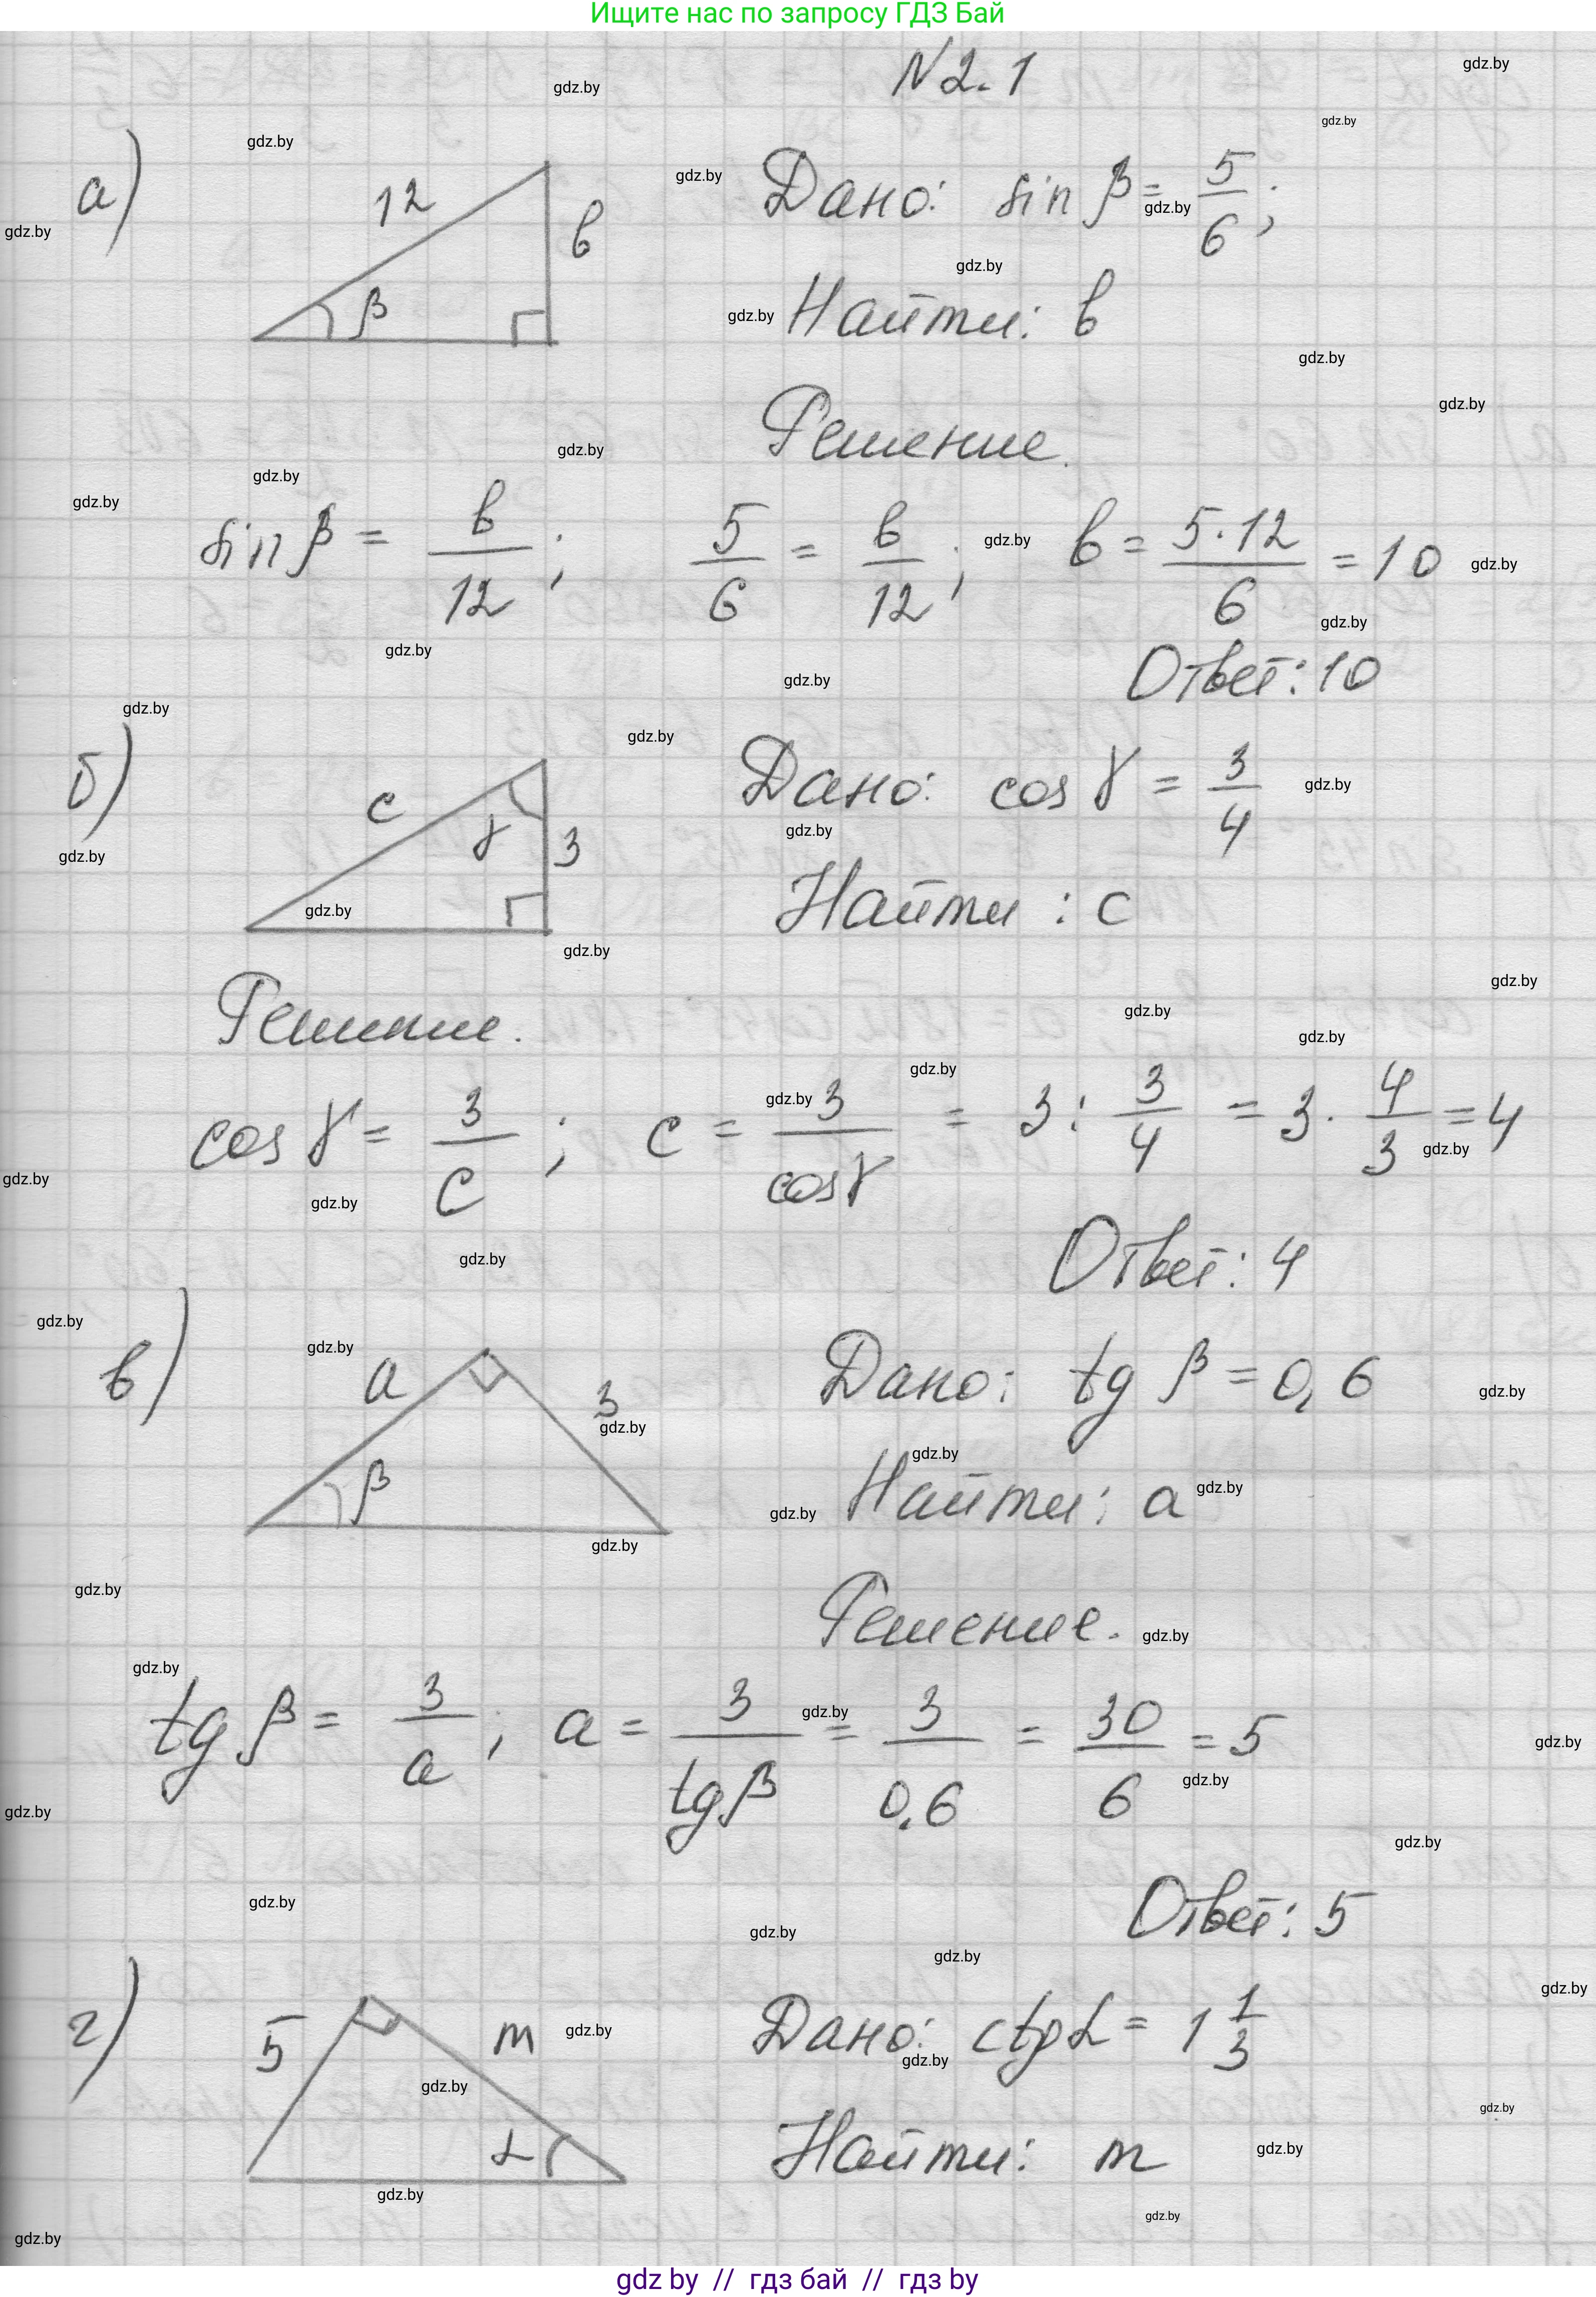 Ищите нас по запросу ГДЗ Бай
N 2.1
а) 12 в β
Дано: sin β = 5/6;
Найти: в
Решение.
sin β = в/12; 5/6 = в/12; в = 5·12/6 = 10
Ответ: 10
б) c γ 3
Дано: cos γ = 3/4
Найти: c
Решение.
cos γ = 3/c; c = 3/cos γ = 3 : 3/4 = 3 · 4/3 = 4
Ответ: 4
в) a 3 β
Дано: tg β = 0,6
Найти: a
Решение.
tg β = 3/a; a = 3/tg β = 3/0,6 = 30/6 = 5
Ответ: 5
г) 5 m α
Дано: ctg α = 1 1/3
Найти: m
gdz by // гдз бай // гдз by